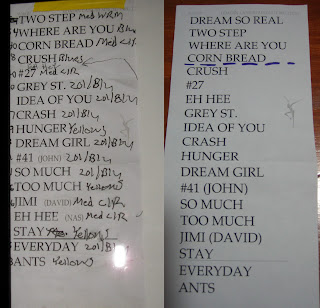 TWO STEP Med WRM
WHERE ARE YOU Blues
CORN BREAD Med CLR
CRUSH Blues
#27 Med CLR
GREY ST. 201/Blu
IDEA OF YOU 201/Blu
CRASH 201/Blu
HUNGER Yellows
DREAM GIRL 201/Blu
#41 (JOHN) 201/Blu
SO MUCH 201/Blu
TOO MUCH Yellows
JIMI (DAVID) Med CLR
EH HEE (NAS) Med CLR
STAY Yellows
EVERYDAY 201/Blu
ANTS Yellows
DREAM SO REAL
TWO STEP
WHERE ARE YOU
CORN BREAD
CRUSH
#27
EH HEE
GREY ST.
IDEA OF YOU
CRASH
HUNGER
DREAM GIRL
#41 (JOHN)
SO MUCH
TOO MUCH
JIMI (DAVID)
STAY
EVERYDAY
ANTS